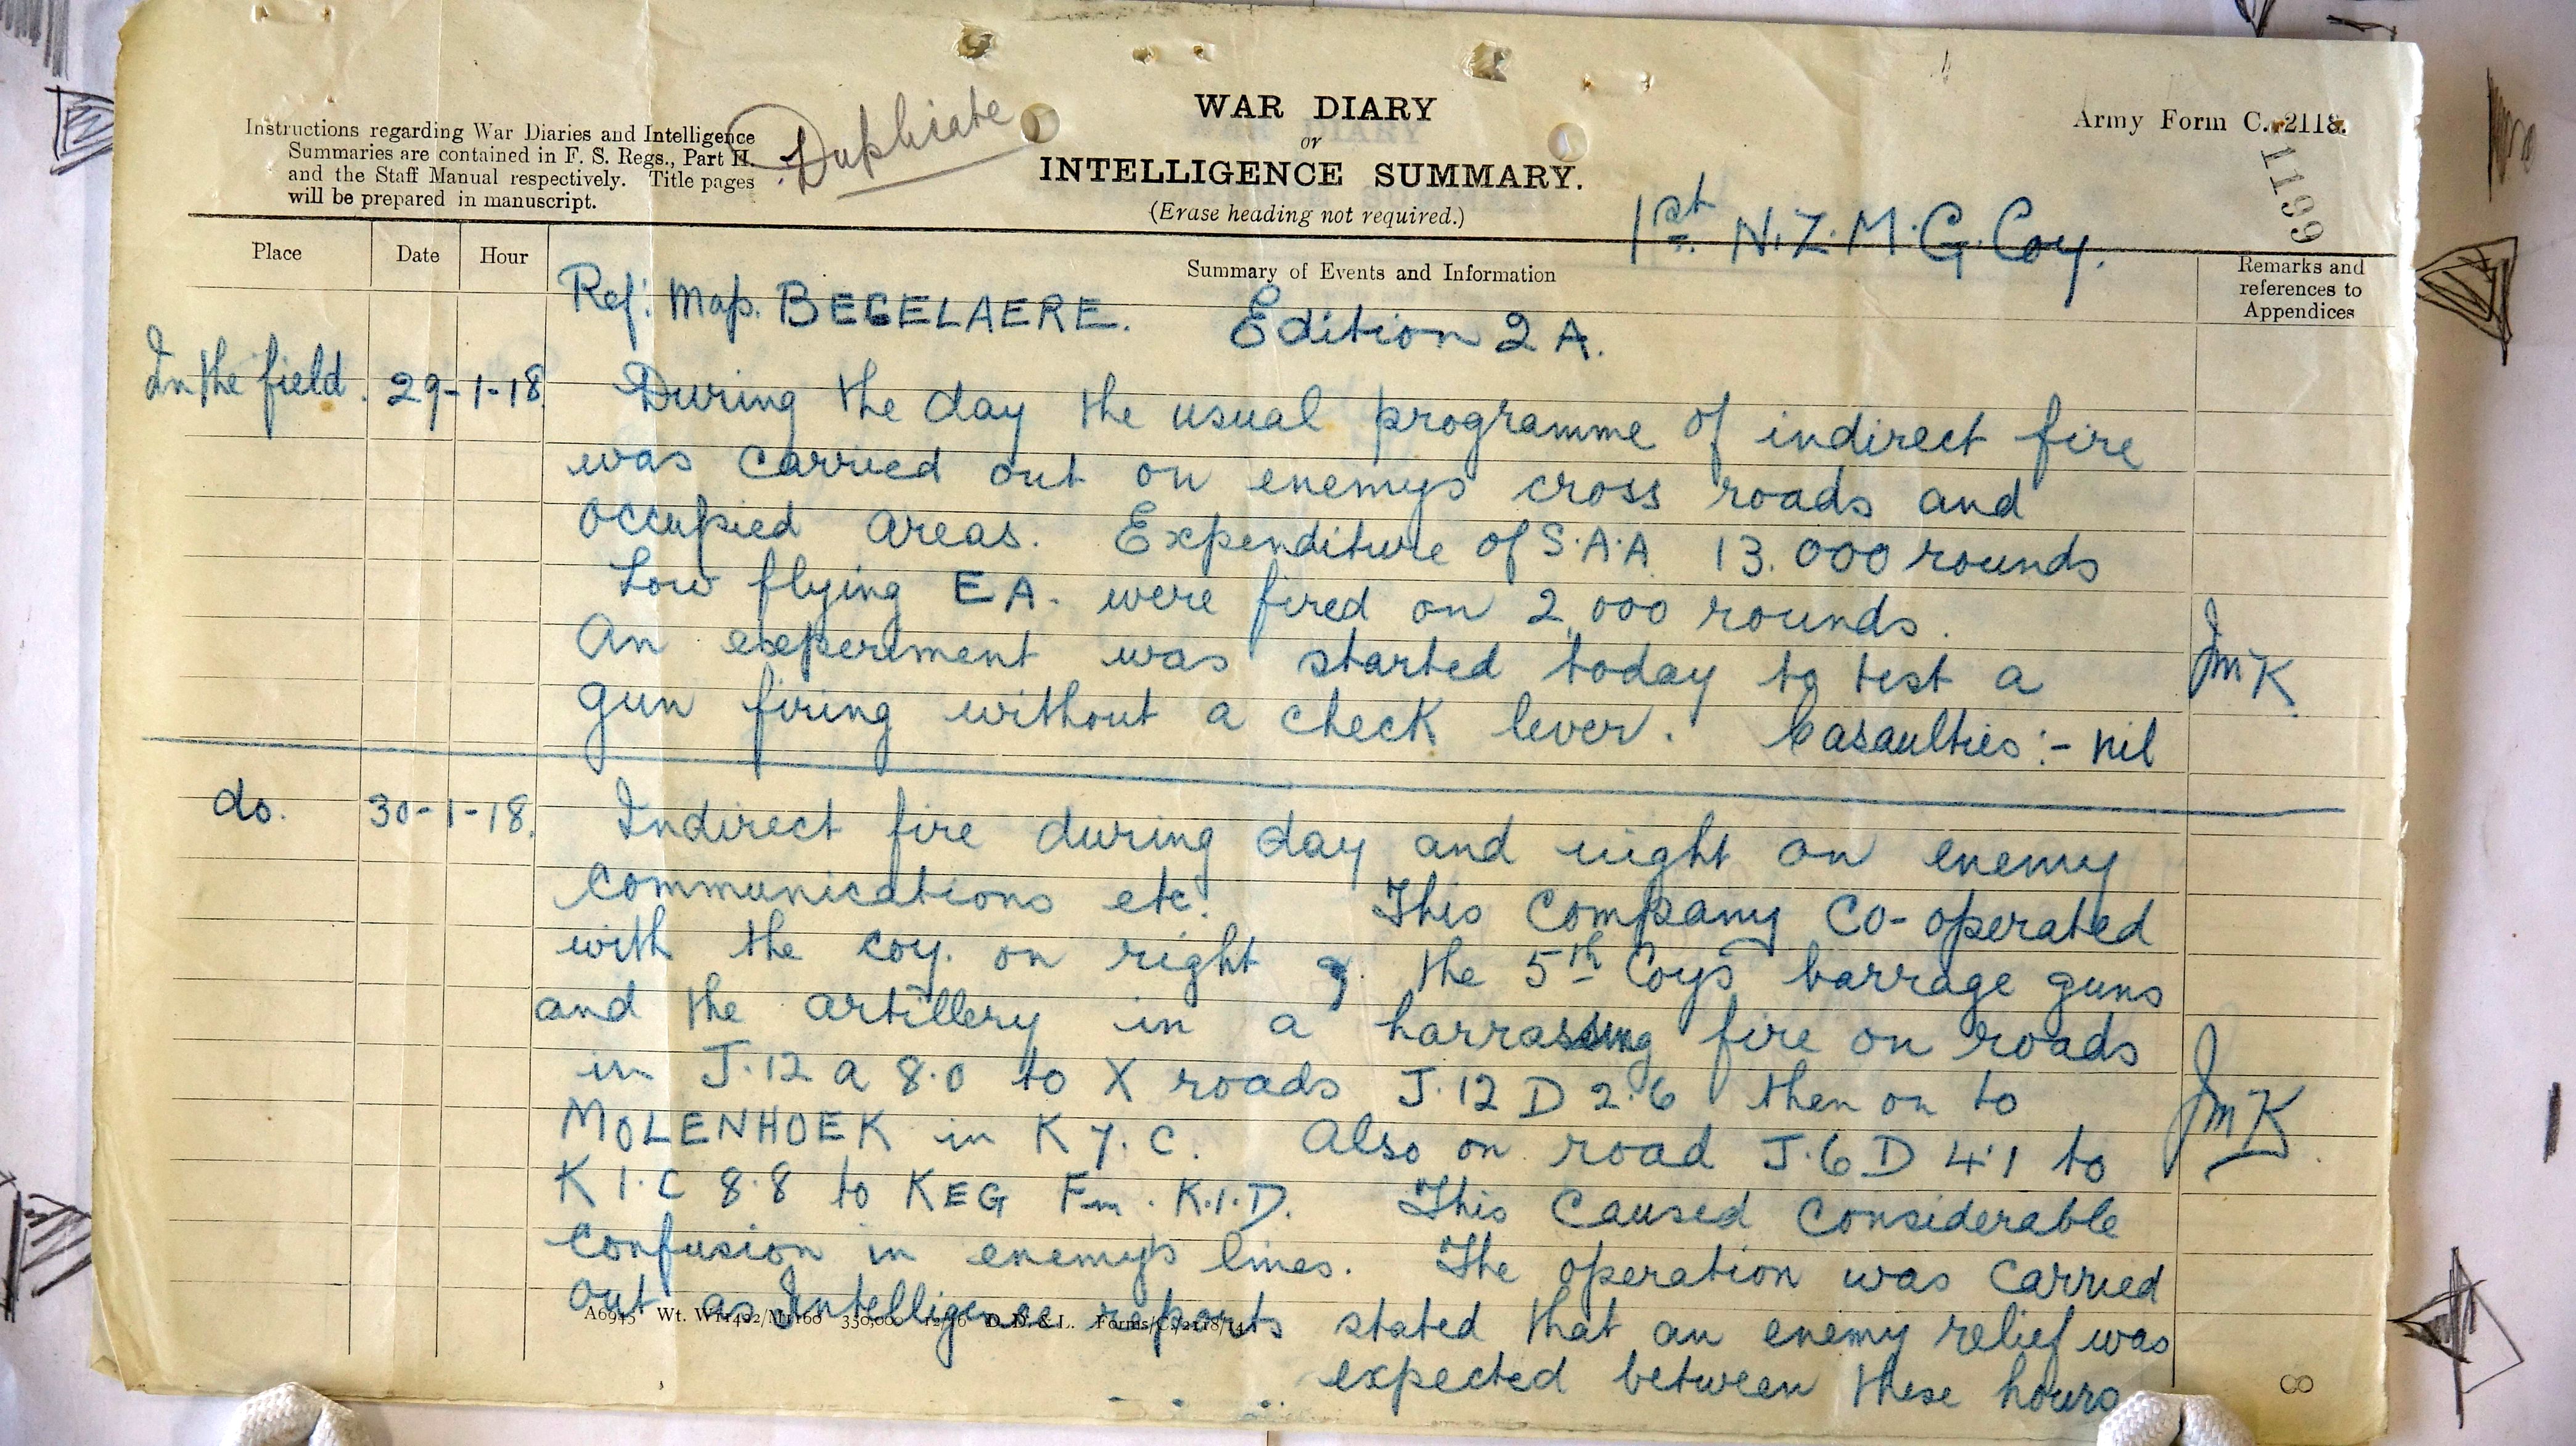 Instructions regarding War Diaries and Intelligence
Summaries are contained in F. S. Regs., Part II.
and the Staff Manual respectively. Title pages
will be prepared in manuscript.
Duplicate
WAR DIARY
or
INTELLIGENCE SUMMARY.
(Erase heading not required.)
Army Form C. 2118.
1199
1st. N.Z.M.G. Coy.
Place
Date
Hour
Summary of Events and Information
Remarks and
references to
Appendices
Ref: Map. BECELAERE. Edition 2 A.
In the field. 29-1-18. During the day the usual programme of indirect fire
was carried out on enemys cross roads and
occupied areas. Expenditure of S.A.A. 13.000 rounds
Low flying EA. were fired on 2,000 rounds.
An experiment was started today to test a
gun firing without a check lever. Casaulties :- nil
JMK
do. 30-1-18. Indirect fire during day and night on enemy
communications etc. This Company Co-operated
with the coy. on right &. the 5th Coys barrage guns
and the artillery in a harrassing fire on roads
in J.12 a 8.0 to X roads J.12 D 2.6 then on to
MOLENHOEK in K 7. C. Also on road J.6 D 4.1 to
K 1.C 8.8 to KEG Fm. K.1.D. This caused considerable
confusion in enemy's lines. The operation was carried
out as Intelligence reports stated that an enemy relief was
expected between these hours
JMK
A6945 Wt. W11422/M1160 350,000 12/16 D. D. & L. Forms/C./2118/14.
8